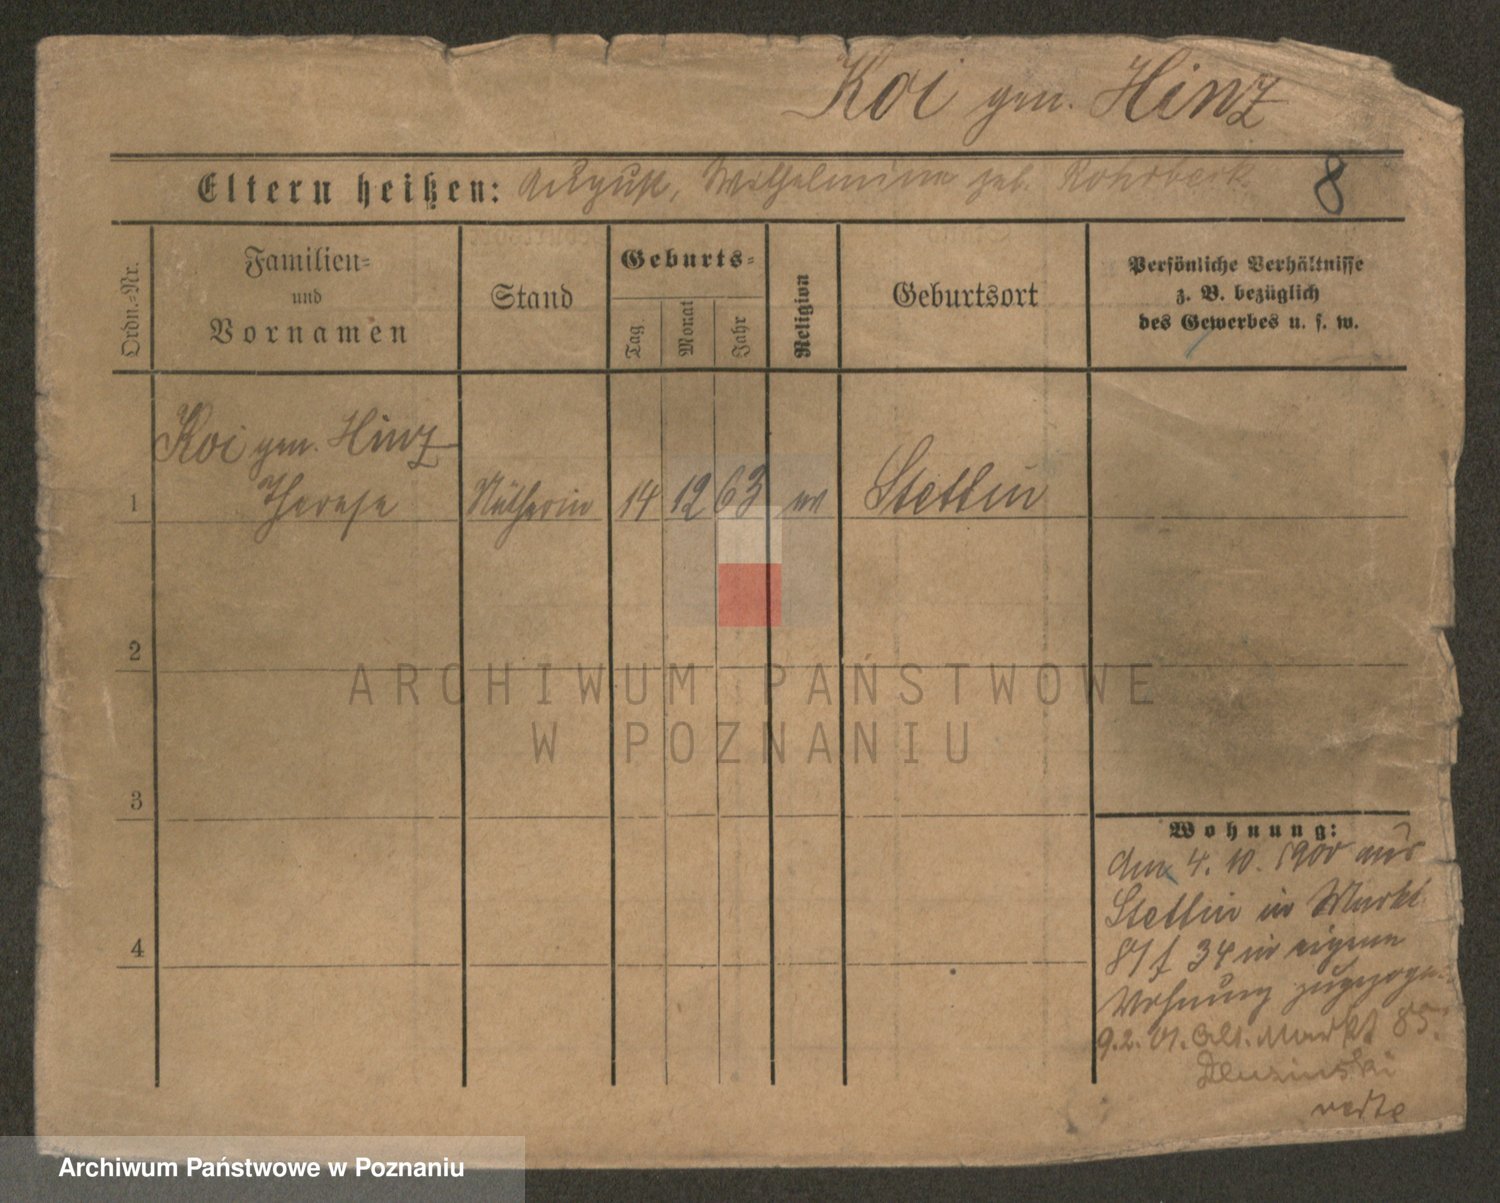 Koi gen. Hinz
Eltern heißen: August, Wilhelmine geb. Rohrbeck
8
Ordn.-Nr.
Familien-
und
Vornamen
Stand
Geburts-
Tag.
Monat
Jahr
Religion
Geburtsort
Persönliche Verhältnisse
z. B. bezüglich
des Gewerbes u. s. w.
Koi gen. Hinz
1 Therese Nätherin 14 12 63 ev Stettin
2
3
4
Wohnung:
Am 4. 10. 1900 aus
Stettin in Markt
81 f 34 in eigene
Wohnung zugezogen
9.2.01. Alt. Markt 85.
verte
ARCHIWUM PAŃSTWOWE
W POZNANIU
Archiwum Państwowe w Poznaniu